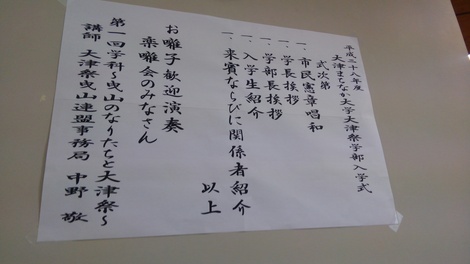 平成二十八年度
大津まちなか大学大津祭学部入学式
式次第
一．市民憲章唱和
一．学長挨拶
一．学部長挨拶
一．入学生紹介
一．来賓ならびに関係者紹介
以上
お囃子歓迎演奏
楽囃会のみなさん
第一回学科～曳山のなりたちと大津祭～
講師 大津祭曳山連盟事務局 中野 敬